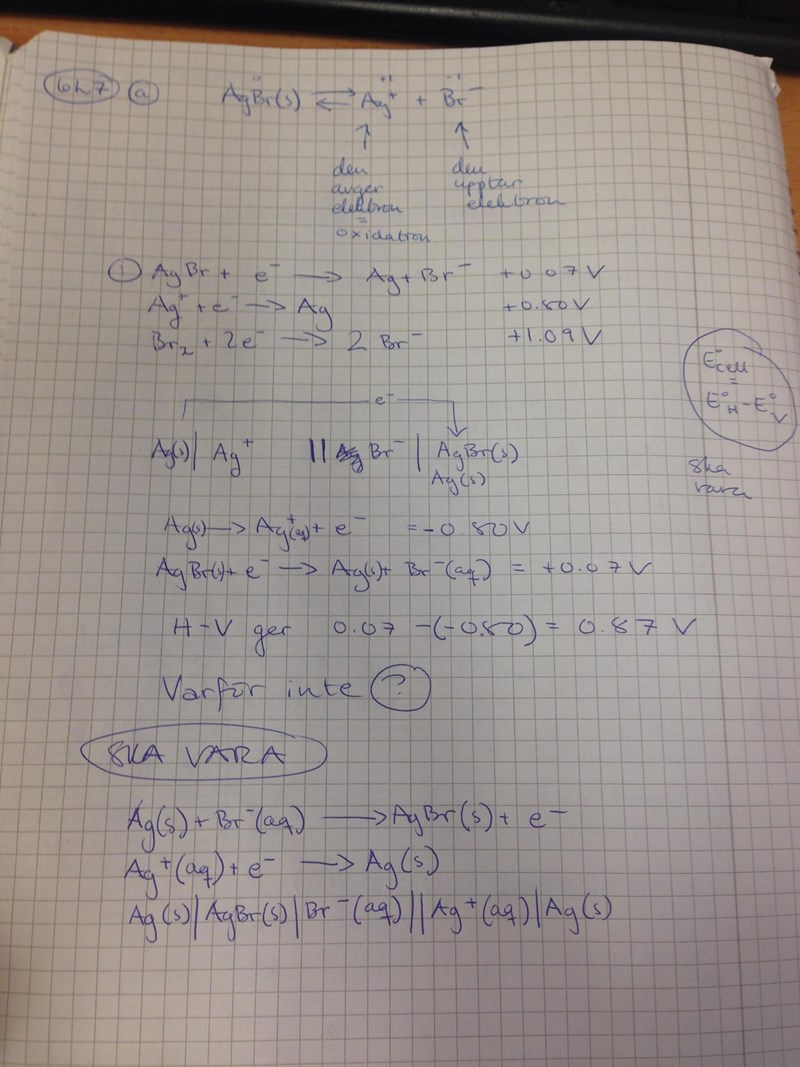 6h7 a AgBr(s) ⇌ Ag⁺ + Br⁻
0 +1 -1
↑ ↑
den den
avger upptar
elektron elektron
=
oxidation
① AgBr + e⁻ → Ag + Br⁻ +0.07V
Ag⁺ + e⁻ → Ag +0.80V
Br₂ + 2e⁻ → 2 Br⁻ +1.09V
E°cell
=
E°H - E°V
e⁻
Ag(s) | Ag⁺ || Br⁻ | AgBr(s)
Ag(s)
ska
vara
Ag(s) → Ag⁺(aq) + e⁻ = -0.80V
AgBr(s) + e⁻ → Ag(s) + Br⁻(aq) = +0.07V
H-V ger 0.07 -(-0.80) = 0.87 V
Varför inte ?
SKA VARA
Ag(s) + Br⁻(aq) → AgBr(s) + e⁻
Ag⁺(aq) + e⁻ → Ag(s)
Ag(s) | AgBr(s) | Br⁻(aq) || Ag⁺(aq) | Ag(s)